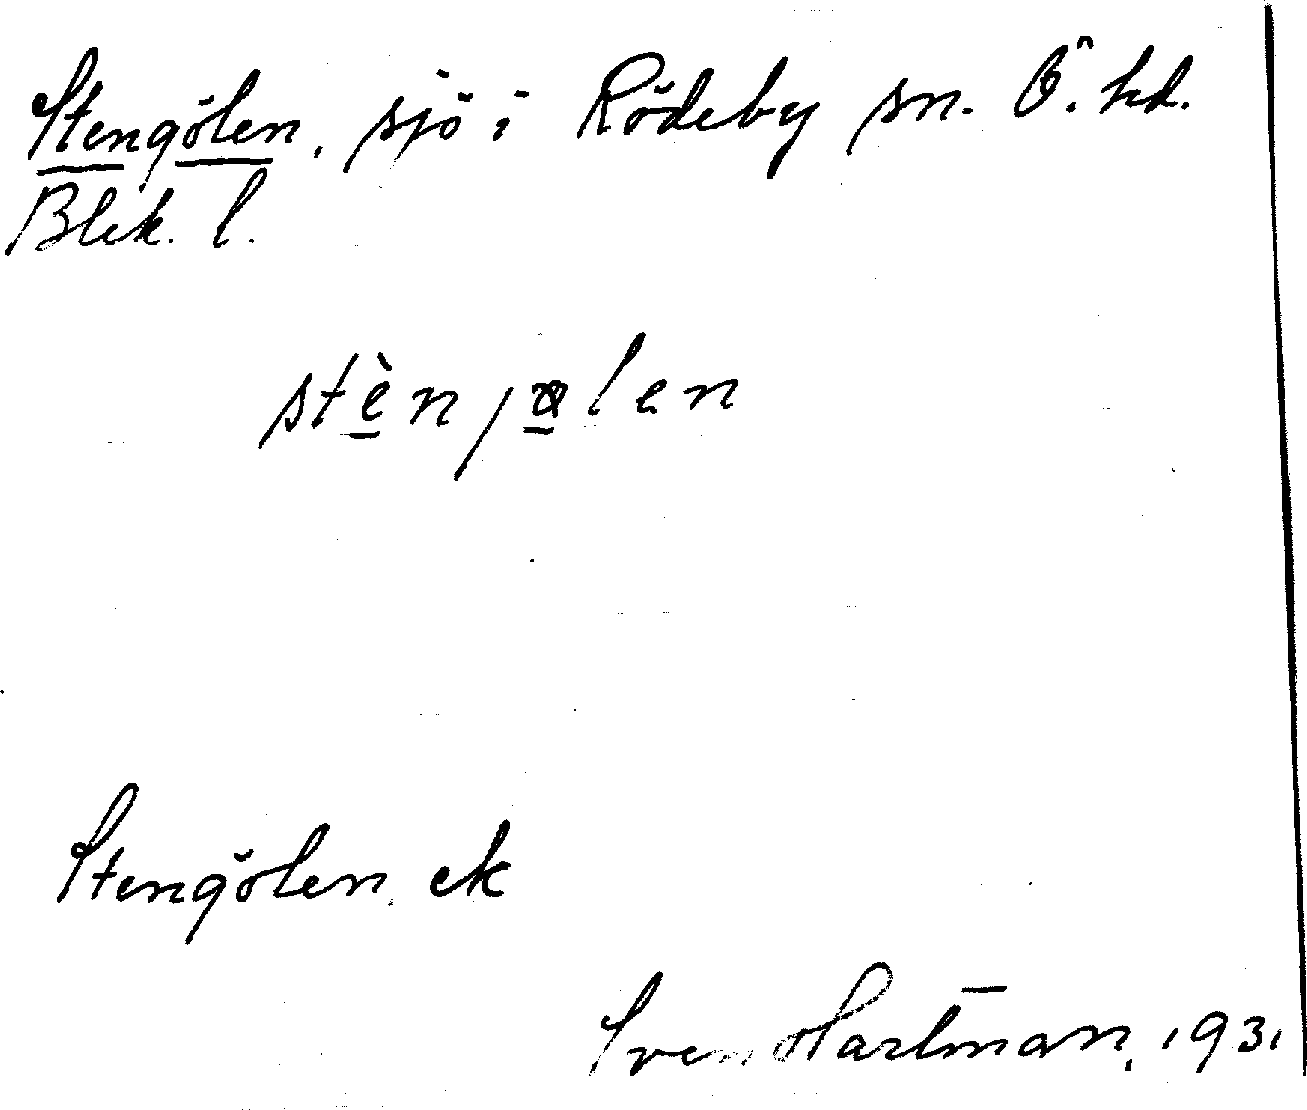 Stengölen, sjö i Rödeby sn. Ö. hd.
Blek. l.
stènjølen
Stengölen. ek
Sven Hartman, 1931